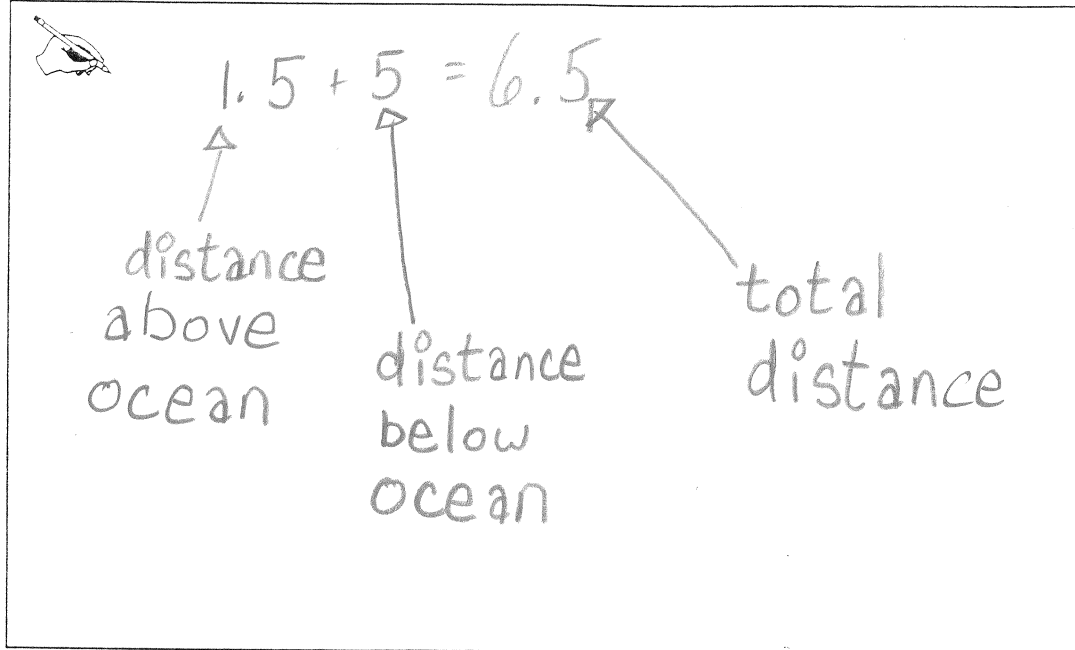 1.5 + 5 = 6.5
distance
above
ocean
distance
below
ocean
total
distance